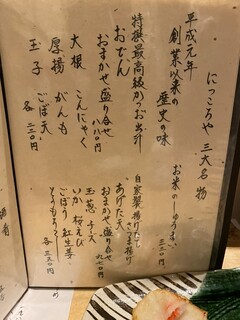 にっころや 三大名物
平成元年
創業以来の
歴史の味
お米のしゅうまい
三三〇円
特撰最高級かつお出汁
おでん
おまかせ盛り合せ
八八〇円
大根 こんにゃく
厚揚 がんも
玉子 ごぼ天
各 二二〇円
自家製揚げたて
さつま揚げ
あげた天
おまかせ 盛り合せ
九七〇円
玉葱 チーズ
いか 桜えび
ごぼう 紅生姜
とうもろこし
各 三五〇円